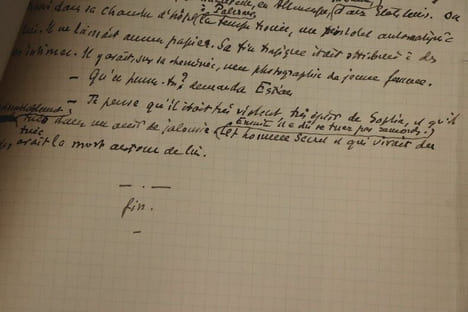 à Palerme, en Allemagne, aux Etats Unis. On
dans sa chambre d'hôtel, la tempe trouée, un pistolet automatique
Il ne laissait aucun papier. Sa fin tragique était attribuée à des
intimes. Il y avait, sur sa cheminée, une photographie de jeune femme.
— Qu'en penses-tu? demanda
— Je pense qu'il était très violent, très épris de Sophia, et qu'il
dans un accès de jalousie. Ensuite il a dû se tuer par remords.
Cet homme secret et qui vivait de
avait la mort autour de lui.
fin.